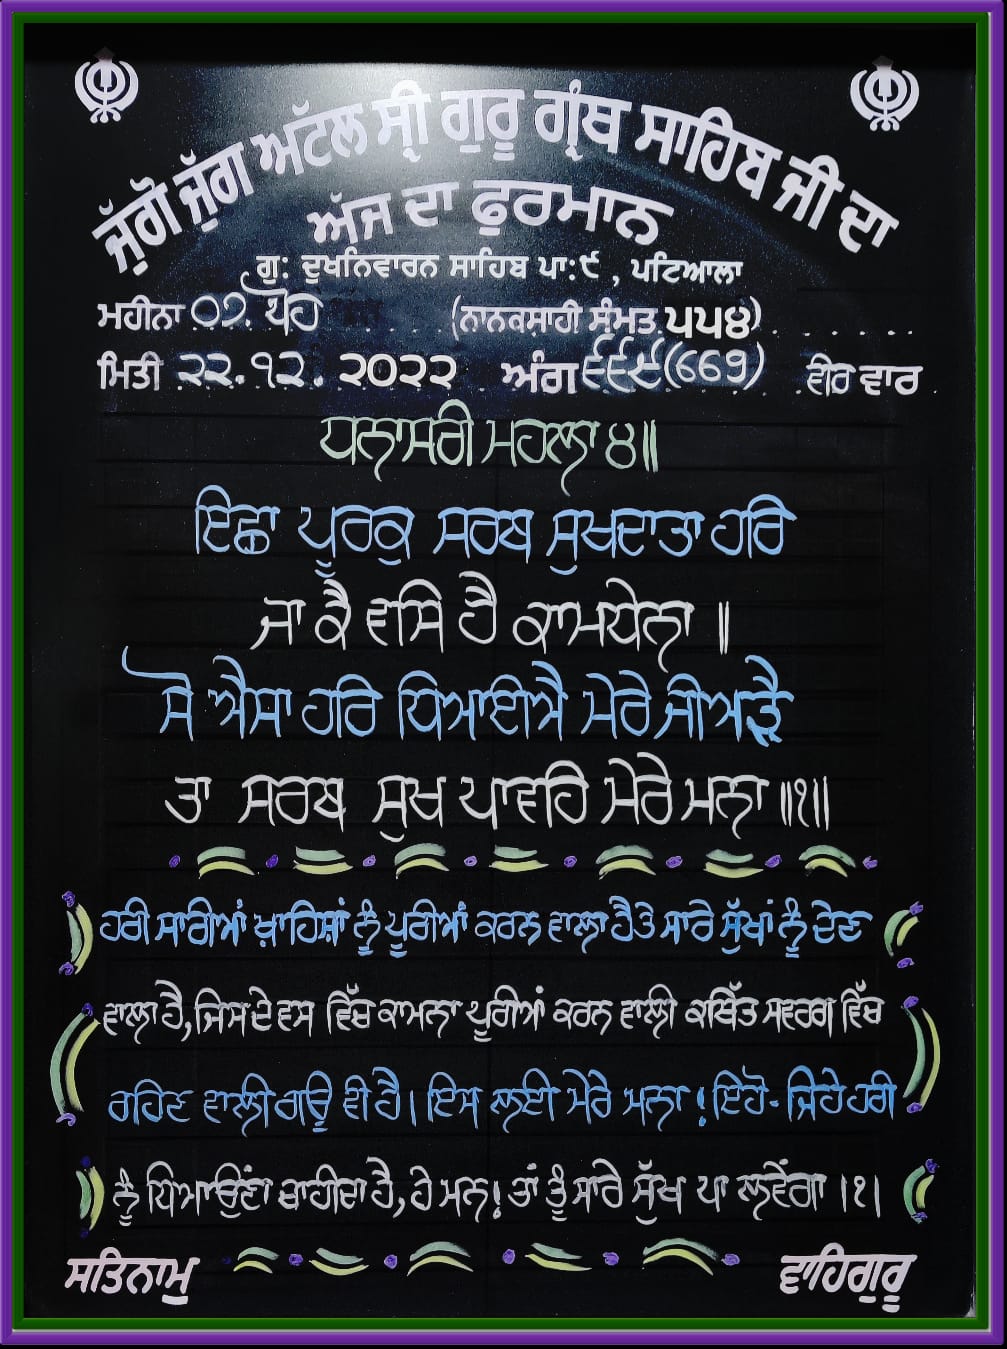 ਜੁੱਗੋ ਜੁੱਗ ਅਟੱਲ ਸ੍ਰੀ ਗੁਰੂ ਗ੍ਰੰਥ ਸਾਹਿਬ ਜੀ ਦਾ
ਅੱਜ ਦਾ ਫੁਰਮਾਨ
ਗੁ: ਦੁਖਨਿਵਾਰਨ ਸਾਹਿਬ ਪਾ:੯ , ਪਟਿਆਲਾ
ਮਹੀਨਾ ੦੭. ਪੋਹ (ਨਾਨਕਸ਼ਾਹੀ ਸੰਮਤ ੫੫੪)
ਮਿਤੀ ੨੨.੧੨. ੨੦੨੨ ਅੰਗ ੬੬੯(669) ਵੀਰ ਵਾਰ
ਧਨਾਸਰੀ ਮਹਲਾ ੪॥
ਇਛਾ ਪੂਰਕੁ ਸਰਬ ਸੁਖਦਾਤਾ ਹਰਿ
ਜਾ ਕੈ ਵਸਿ ਹੈ ਕਾਮਧੇਨਾ ॥
ਸੋ ਐਸਾ ਹਰਿ ਧਿਆਈਐ ਮੇਰੇ ਜੀਅੜੇ
ਤਾ ਸਰਬ ਸੁਖ ਪਾਵਹਿ ਮੇਰੇ ਮਨਾ ॥੧॥
ਹਰੀ ਸਾਰੀਆਂ ਖ਼ਾਹਿਸ਼ਾਂ ਨੂੰ ਪੂਰੀਆਂ ਕਰਨ ਵਾਲਾ ਹੈ ਤੇ ਸਾਰੇ ਸੁੱਖਾਂ ਨੂੰ ਦੇਣ
ਵਾਲਾ ਹੈ, ਜਿਸ ਦੇ ਵਸ ਵਿੱਚ ਕਾਮਨਾ ਪੂਰੀਆਂ ਕਰਨ ਵਾਲੀ ਕਥਿੱਤ ਸਵਰਗ ਵਿੱਚ
ਰਹਿਣ ਵਾਲੀ ਗਊ ਵੀ ਹੈ। ਇਸ ਲਈ ਮੇਰੇ ਮਨਾ ! ਇਹੋ-ਜਿਹੇ ਹਰੀ
ਨੂੰ ਧਿਆਉਣਾ ਚਾਹੀਦਾ ਹੈ, ਹੇ ਮਨ! ਤਾਂ ਤੂੰ ਸਾਰੇ ਸੁੱਖ ਪਾ ਲਵੇਂਗਾ ।੧।
ਸਤਿਨਾਮੁ ਵਾਹਿਗੁਰੂ